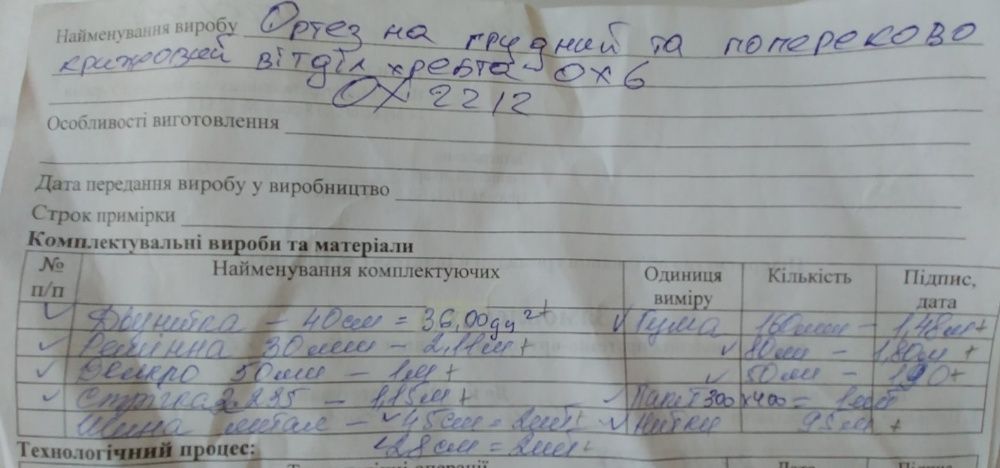 Найменування виробу Ортез на грудний та попереково
крижовий відділ хребта ОХ6
ОХ 2212
Особливості виготовлення
Дата передання виробу у виробництво
Строк примірки
Комплектувальні вироби та матеріали
№ п/п Найменування комплектуючих Одиниця виміру Кількість Підпис, дата
✓ - 40см = 36,00 + ✓ Гума 160мм - 1,48м+
✓ 30мм - 2,11м+ ✓ 80мм - 1,80м +
✓ 50мм - 1м+ ✓ 50мм -
✓ Стрічка 2225 - 1,15м+ ✓ Пакет 300x400 =
Шина метал - ✓45см = 2шт+ ✓ нитки 95м +
28см = 2шт
Технологічний процес: